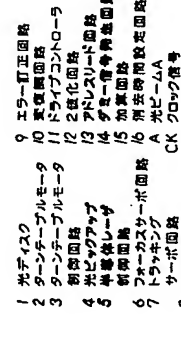 1 光ディスク
2 ターンテーブルモータ
3 ターンテーブルモータ
制御回路
4 光ピックアップ
5 半導体レーザ
制御回路
6 フォーカスサーボ回路
7 トラッキング
サーボ回路
9 エラー訂正回路
10 変復調回路
11 ドライブコントローラ
12 2値化回路
13 アドレスリード回路
14 ダミー信号発生回路
15 加算回路
16 消去時間設定回路
A 光ビームA
CK クロック信号